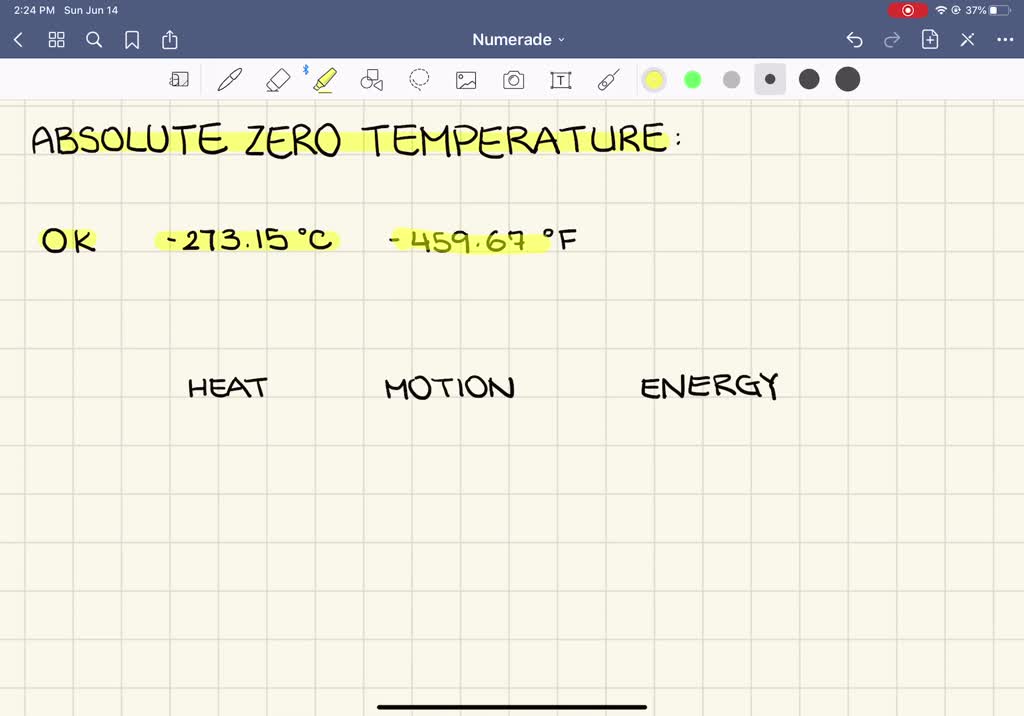 2:24 PM Sun Jun 14 37%
Numerade
T
ABSOLUTE ZERO TEMPERATURE:
OK -273.15°C -459.67 °F
HEAT MOTION ENERGY